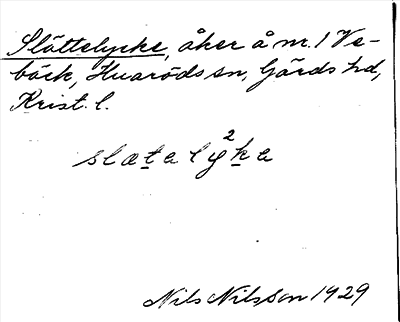 Slättelycke, åker å nr. 1 Ve-
böck, Huaröds sn, Gärds hd,
Krist. l.
2
slætalyka
Nils Nilsson 1929